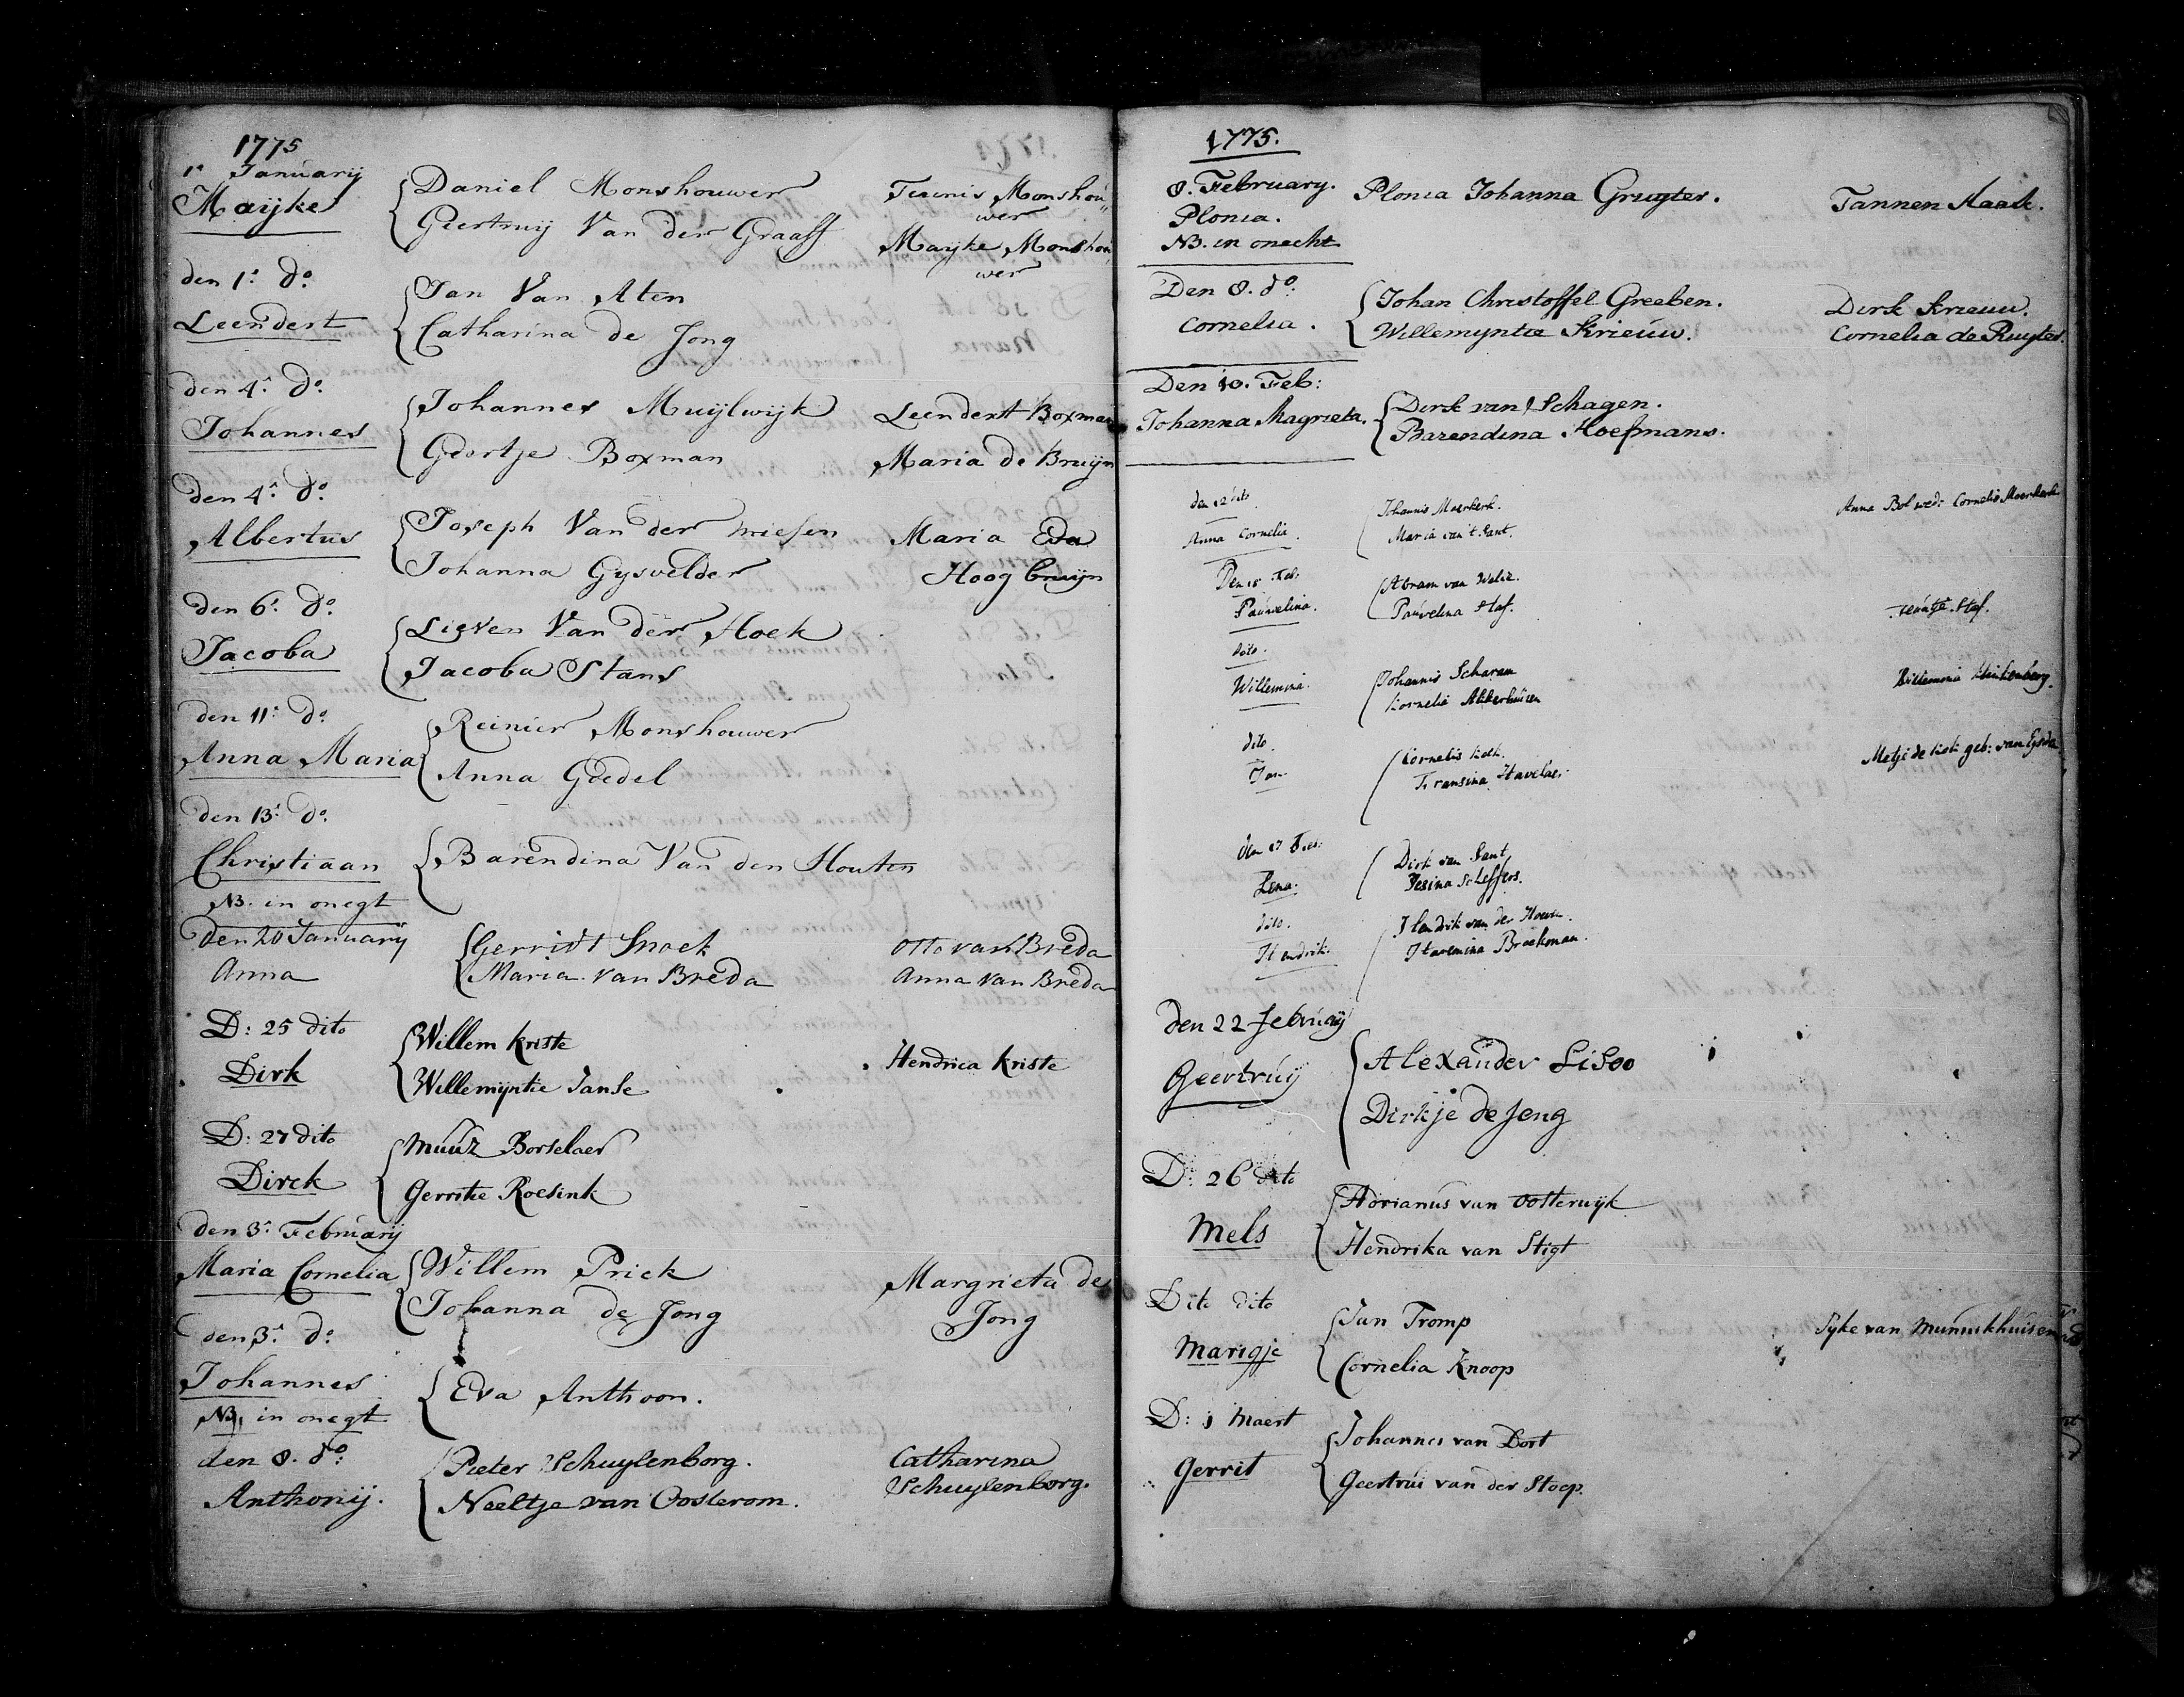 1775
1e Januarij
Maijke
Daniel Monshouwer
Geertruij Van der Graaff
Teunis Monshou
wer
Mayke Monshou
wer
den 1e do
Leendert
Jan Van Aten
Catharina de Jong
den 4e do
Johannes
Johannes Muijlwijk
Geertje Boxman
Leendert Boxman
Maria de Bruijn
den 4e do
Albertus
Joseph Van der
Johanna Gysvelder
Maria Eva
Hoog bruijn
den 6e do
Jacoba
Lieven Van der Hoek
Jacoba Stans
den 11e do
Anna Maria
Reinier Monshouwer
Anna Goedel
den 13e do
Christiaan
NB. in onegt
Barendina Van den Houten
den 20 Januarij
Anna
Gerridt Snoek
Maria van Breda
Otto van Breda
Anna van Breda
D: 25 dito
Dirk
Willem Kriste
Willemyntie Janse
Hendrica Kriste
D: 27 dito
Dirck
Muuz Borselaer
Gerritie Roesink
den 3e Februarij
Maria Cornelia
Willem Prick
Johanna de Jong
Margrieta de
Jong
den 3e do
Johannes
NB. in onegt
Eva Anthoon.
den 8. do:
Anthonij.
Pieter Schuylenborg.
Neeltje van Oosterom.
Catharina
Schuylenborg.
1775.
8. February.
Plonia.
NB. in onecht
Plonia Johanna Grugter.
Tannen Haak.
Den 8. do.
Cornelia.
Johan Christoffel Greeben.
Willemyntie Krieuw.
Dirk Krieuw.
Cornelia de Ruyter.
Den 10. Feb:
Johanna Magrieta.
Dirk van Schagen.
Barendina Hoefmans.
den 12 dito
Anna Cornelia.
Johannis Moerkerk.
Maria van 't Sant.
Anna Bol wed: Cornelis Moerkerk
Den 15 Feb:
Pauwelina.
Abram van
Pauvelina Stof.
Stof.
dito.
Willemina.
Johannis Scharam
Kornelia
Willemina Klinkenberg.
dito.
Jan.
Kornelis Kok.
Fransina Havelaer.
Metje de Kok geb: van
den 17 Feb:
Lena.
Dirk van Sant
Gesina Scheffers.
dito.
Hendrik.
Hendrik van der Hoeve.
Harmina Broekman.
den 22 februarij
Geertruij
Alexander
Dirkje de Jong
D: 26 dito
Mels
Adrianus van Oosterwijk
Hendrika van Stigt
Dito dito
Marigje
Jan Tromp
Cornelia Knoop
Syke van Munnikhuisen
D: 1 Maert
Gerrit
Johannes van Dort
Geertrui van der Stoep.